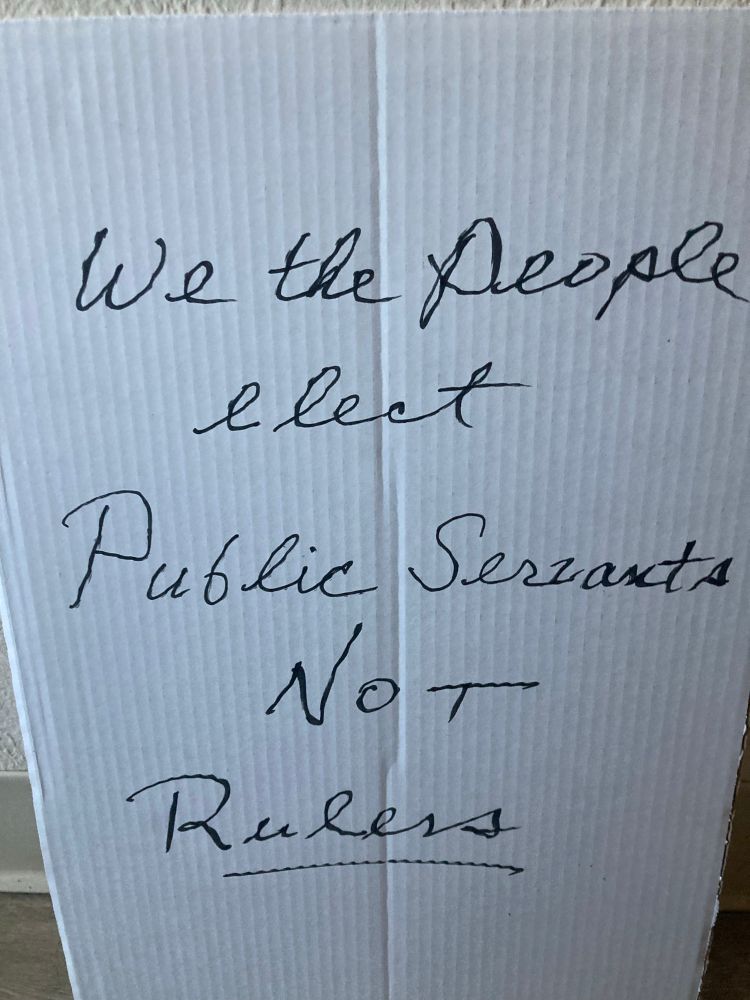 We the People
elect
Public Servants
Not
Rulers